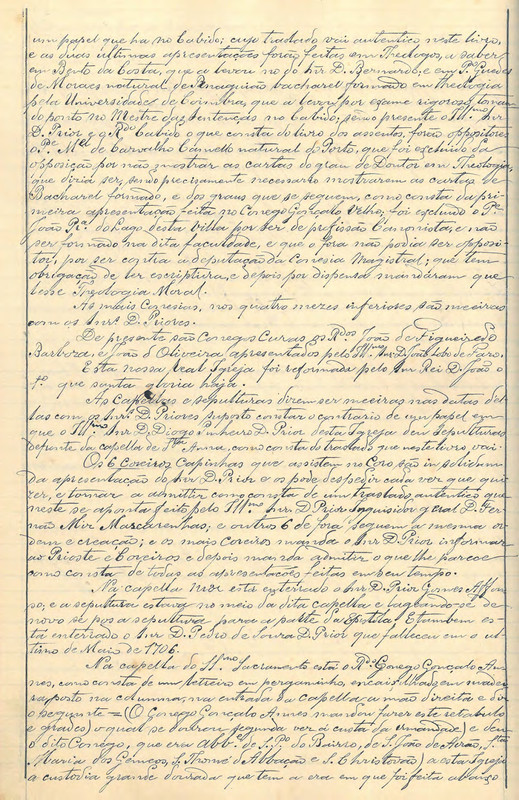 um papel que ha no Cabido; cujo traslado vai autentico neste livro,
e as duas ultimas apresentações forão feitas em Theologos, a saber
em Bento da Costa, que a levou no do Snr. D. Bernardo, e em P.º Guedes
de Moraes natural de Penaguião bacharel formado em Theologia
pela Universidade de Coimbra, que a levou por exame rigoroso, toman
do ponto no Mestre das Sentenças no Cabido, sendo presente o Ill.mo Snr.
D. Prior e o R.do Cabido o que consta do livro dos assentos, forão oppositores
o P.e M.el de Carvalho Camello natural do Porto, que foi excluido da
opposição por não mostrar as cartas do grau de Doutor em Theologia,
que dizia ser, sendo precisamente necessario mostrarem as cartas de
Bacharel formado, e dos graus que se seguem, como consta da pri-
meira apresentação feita no Conego Gonçalo Velho, foi excluido o P.e
João do Lago desta villa por ser de profissão Canonista, e não
ser formado na dita faculdade, e que o fora não podia ser opposi-
tor, por ser contra a deputação da Conesia Magistral; que tem
obrigação de ler escriptura, e depois por dispensa mandaram que
lesse Theologia Moral.
As mais Conesias, nos quatro mezes inferiores são meeiras
com os Snr.s D. Priores.
De presente são Conegos Curas os R.dos João de Figueiredo
Barboza, e João d'Oliveira apresentados pelo Ill.mo Snr. D. João Lobo de Faro.
Esta nossa real Igreja foi reformada pelo Snr. Rei D. João o
1.º que santa gloria haja.
As Capellas e sepulturas dizem ser meeiras nas datas del-
las com os Snr.s D. Priores supposto constar o contrario de um papel em
que o Ill.mo Snr. D. Diogo Pinheiro D. Prior desta Igreja deu sepulturas
defronte da capella de S.ta Anna, como consta do traslado que neste livro vai.
Os 6 Coreiros Capinhas que assistem no Coro são in solidum
da apresentação do Snr. D. Prior e os pode despedir cada vez que qui-
zer, e tornar a admittir como consta de um traslado autentico que
neste se aponta feito pelo Ill.mo Snr. D. Prior Inquisidor geral D. Fer-
não Miz Mascarenhas, e outros 6 de fora seguem a mesma or-
dem e creação; e os mais Coreiros manda o Snr. D. Prior informar
ao Prioste e Coreiros e depois manda admittir o que lhe parece
como consta de todas as apresentações feitas em seu tempo.
Na capella mór está enterrado o Snr. D. Prior Gomes Affon-
so, e a sepultura estava no meio da dita capella e lageando-se de
novo se pos a sepultura para a parte da Epistola. E tambem es-
tá enterrado o Snr. D. Pedro de Souza D. Prior que falleceu em o ul-
timo de Maio de 1706.
Na capella do SS.mo Sacramento está o R.do Conego Gonçalo An-
nes, como consta de um letreiro em pergaminho, encaixilhado em madei-
ra, posto na columna, na entrada da capella, a mão direita e diz
o seguinte = (O Conego Gonçalo Annes mandou fazer este retabulo
e grades) o qual se dourou segunda vez á custa da irmandade) e deu
o dito Conego, que era Abb.e de S. P.º do Bairro, de S. João de Airão, S.ta
Maria dos Gemeos, S. Thomé d'Abbação e S. Christovão, a esta Igreja
a custodia grande dourada que tem a era em que foi feita abaixo